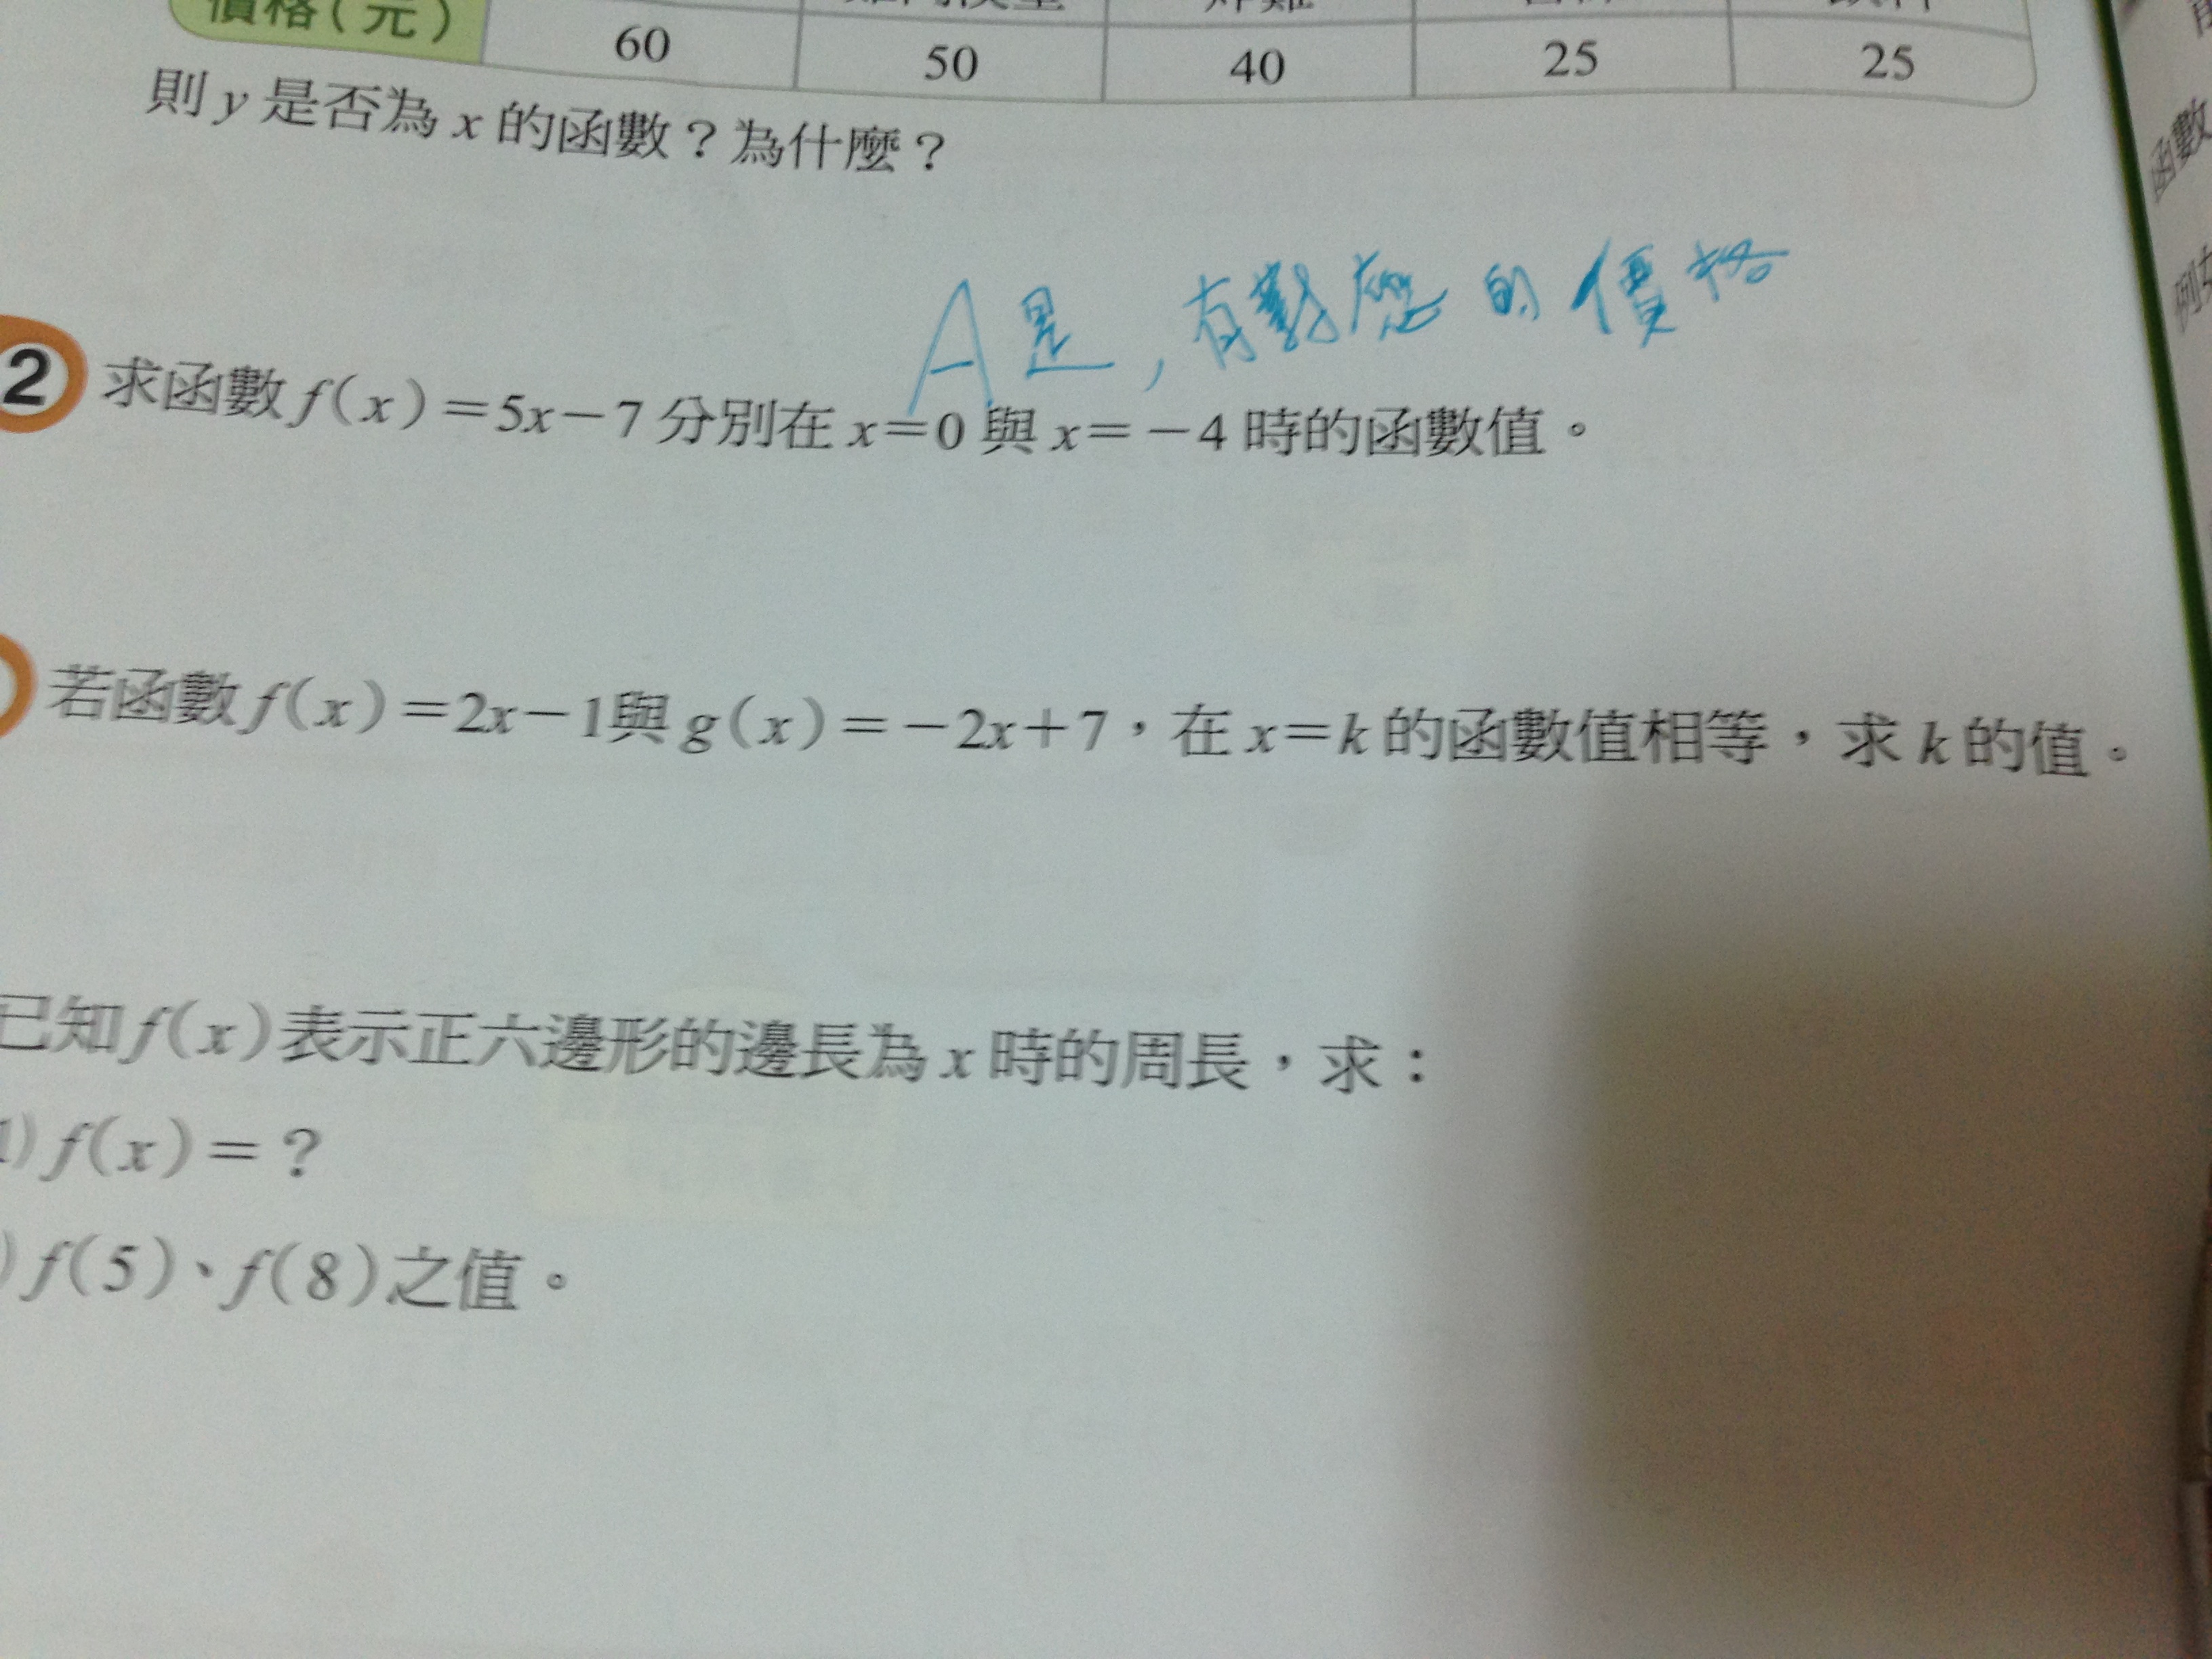 價格(元) 60 50 40 25 25
則 y 是否為 x 的函數？為什麼？
A是，有對應的價格
2 求函數 f(x)=5x−7 分別在 x=0 與 x=−4 時的函數值。
若函數 f(x)=2x−1與 g(x)=−2x+7，在 x=k 的函數值相等，求 k 的值。
已知 f(x)表示正六邊形的邊長為 x 時的周長，求：
1) f(x)=？
) f(5)、f(8)之值。
函數